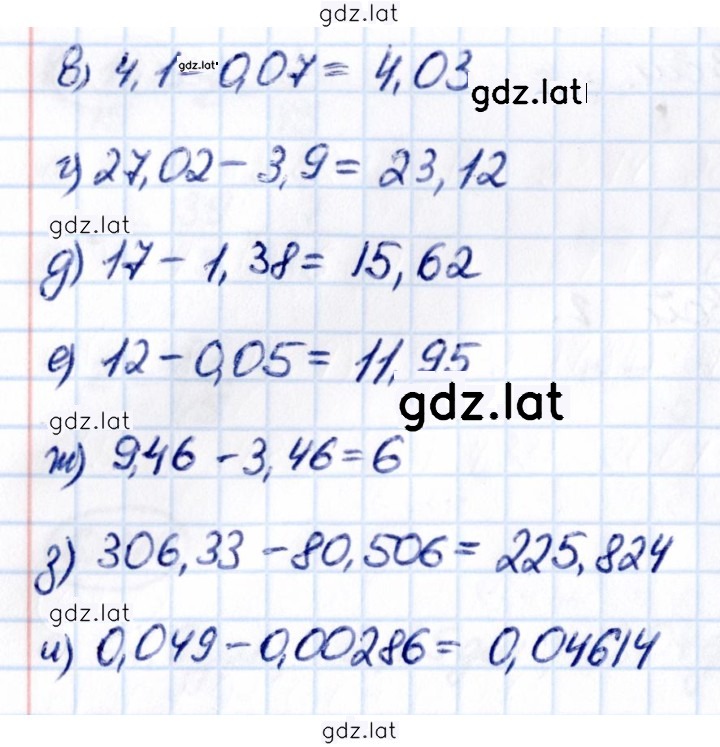 gdz.lat
в) 4,1 gdz.lat - 0,07 = 4,03 gdz.lat
г) 27,02 - 3,9 = 23,12
gdz.lat
д) 17 - 1,38 = 15,62
е) 12 - 0,05 = 11,95
gdz.lat
gdz.lat
ж) 9,46 - 3,46 = 6
з) 306,33 - 80,506 = 225,824
gdz.lat
и) 0,049 - 0,00286 = 0,04614
gdz.lat